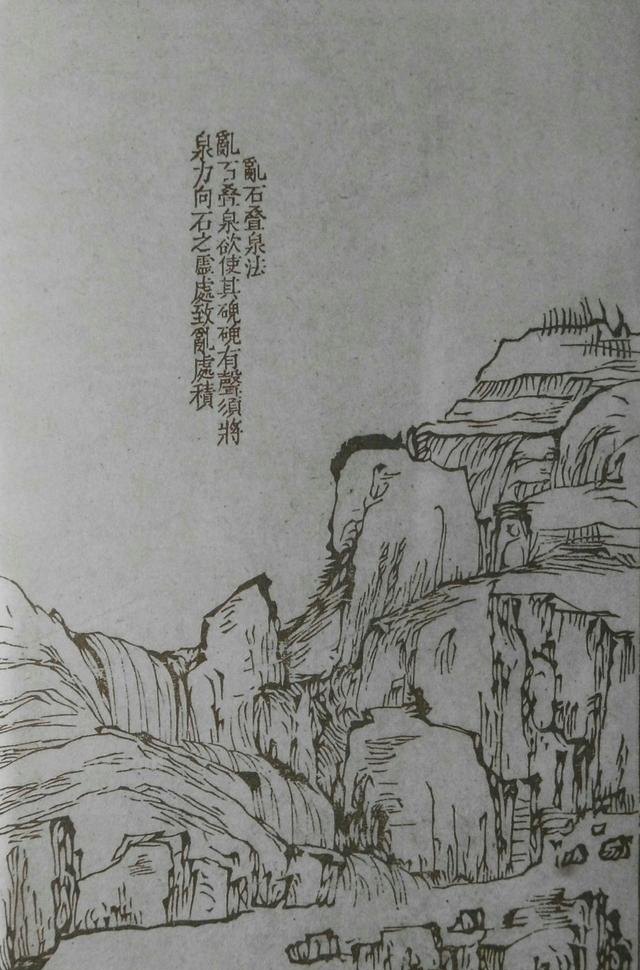 亂石叠泉法
亂石叠泉欲使其硍硍有聲須將
泉力向石之虛處致亂處積